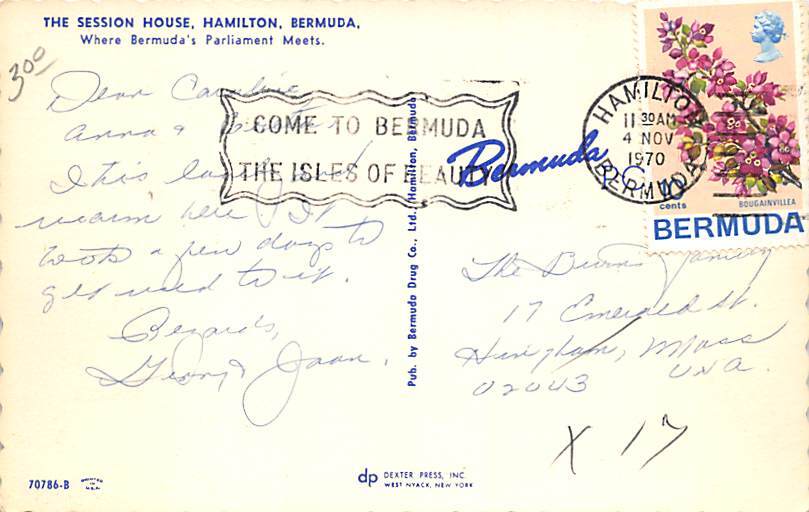 THE SESSION HOUSE, HAMILTON, BERMUDA,
Where Bermuda's Parliament Meets.
300
Dear Caroline
Anna &
COME TO BERMUDA
THE ISLES OF BEAUTY
This
warm here. It
took a few days to
get used to it.
Regards,
& Joan.
Pub. by Bermuda Drug Co., Ltd., Hamilton, Bermuda
Bermuda
HAMILTON
11 30 AM
4 NOV
1970
BERMUDA
cents
BOUGAINVILLEA
BERMUDA
The Burns Family
17 Emerald St.
Hingham, Mass
02043 USA.
X 17
70786-B
PRINTED
IN
U.S.A.
dp DEXTER PRESS, INC.
WEST NYACK, NEW YORK